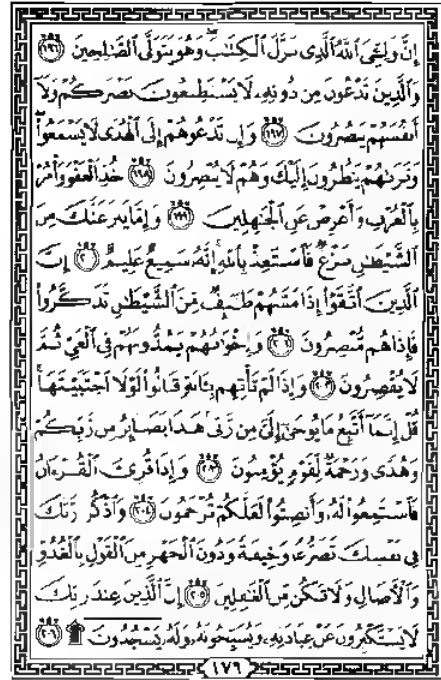 إِنَّ وَلِـِّۧيَ ٱللَّهُ ٱلَّذِي نَزَّلَ ٱلْكِتَٰبَ وَهُوَ يَتَوَلَّى ٱلصَّٰلِحِينَ ١٩٦
وَٱلَّذِينَ تَدْعُونَ مِن دُونِهِۦ لَا يَسْتَطِيعُونَ نَصْرَكُمْ وَلَآ
أَنفُسَهُمْ يَنصُرُونَ ١٩٧ وَإِن تَدْعُوهُمْ إِلَى ٱلْهُدَىٰ لَا يَسْمَعُوا۟
وَتَرَىٰهُمْ يَنظُرُونَ إِلَيْكَ وَهُمْ لَا يُبْصِرُونَ ١٩٨ خُذِ ٱلْعَفْوَ وَأْمُرْ
بِٱلْعُرْفِ وَأَعْرِضْ عَنِ ٱلْجَٰهِلِينَ ١٩٩ وَإِمَّا يَنزَغَنَّكَ مِنَ
ٱلشَّيْطَٰنِ نَزْغٌ فَٱسْتَعِذْ بِٱللَّهِ إِنَّهُۥ سَمِيعٌ عَلِيمٌ ٢٠٠ إِنَّ
ٱلَّذِينَ ٱتَّقَوْا۟ إِذَا مَسَّهُمْ طَٰٓئِفٌ مِّنَ ٱلشَّيْطَٰنِ تَذَكَّرُوا۟
فَإِذَا هُم مُّبْصِرُونَ ٢٠١ وَإِخْوَٰنُهُمْ يَمُدُّونَهُمْ فِي ٱلْغَيِّ ثُمَّ
لَا يُقْصِرُونَ ٢٠٢ وَإِذَا لَمْ تَأْتِهِم بِـَٔايَةٍ قَالُوا۟ لَوْلَا ٱجْتَبَيْتَهَا
قُلْ إِنَّمَآ أَتَّبِعُ مَا يُوحَىٰٓ إِلَيَّ مِن رَّبِّي هَٰذَا بَصَآئِرُ مِن رَّبِّكُمْ
وَهُدًى وَرَحْمَةٌ لِّقَوْمٍ يُؤْمِنُونَ ٢٠٣ وَإِذَا قُرِئَ ٱلْقُرْءَانُ
فَٱسْتَمِعُوا۟ لَهُۥ وَأَنصِتُوا۟ لَعَلَّكُمْ تُرْحَمُونَ ٢٠٤ وَٱذْكُر رَّبَّكَ
فِي نَفْسِكَ تَضَرُّعًا وَخِيفَةً وَدُونَ ٱلْجَهْرِ مِنَ ٱلْقَوْلِ بِٱلْغُدُوِّ
وَٱلْءَاصَالِ وَلَا تَكُن مِّنَ ٱلْغَٰفِلِينَ ٢٠٥ إِنَّ ٱلَّذِينَ عِندَ رَبِّكَ
لَا يَسْتَكْبِرُونَ عَنْ عِبَادَتِهِۦ وَيُسَبِّحُونَهُۥ وَلَهُۥ يَسْجُدُونَ ۩ ٢٠٦
١٧٦